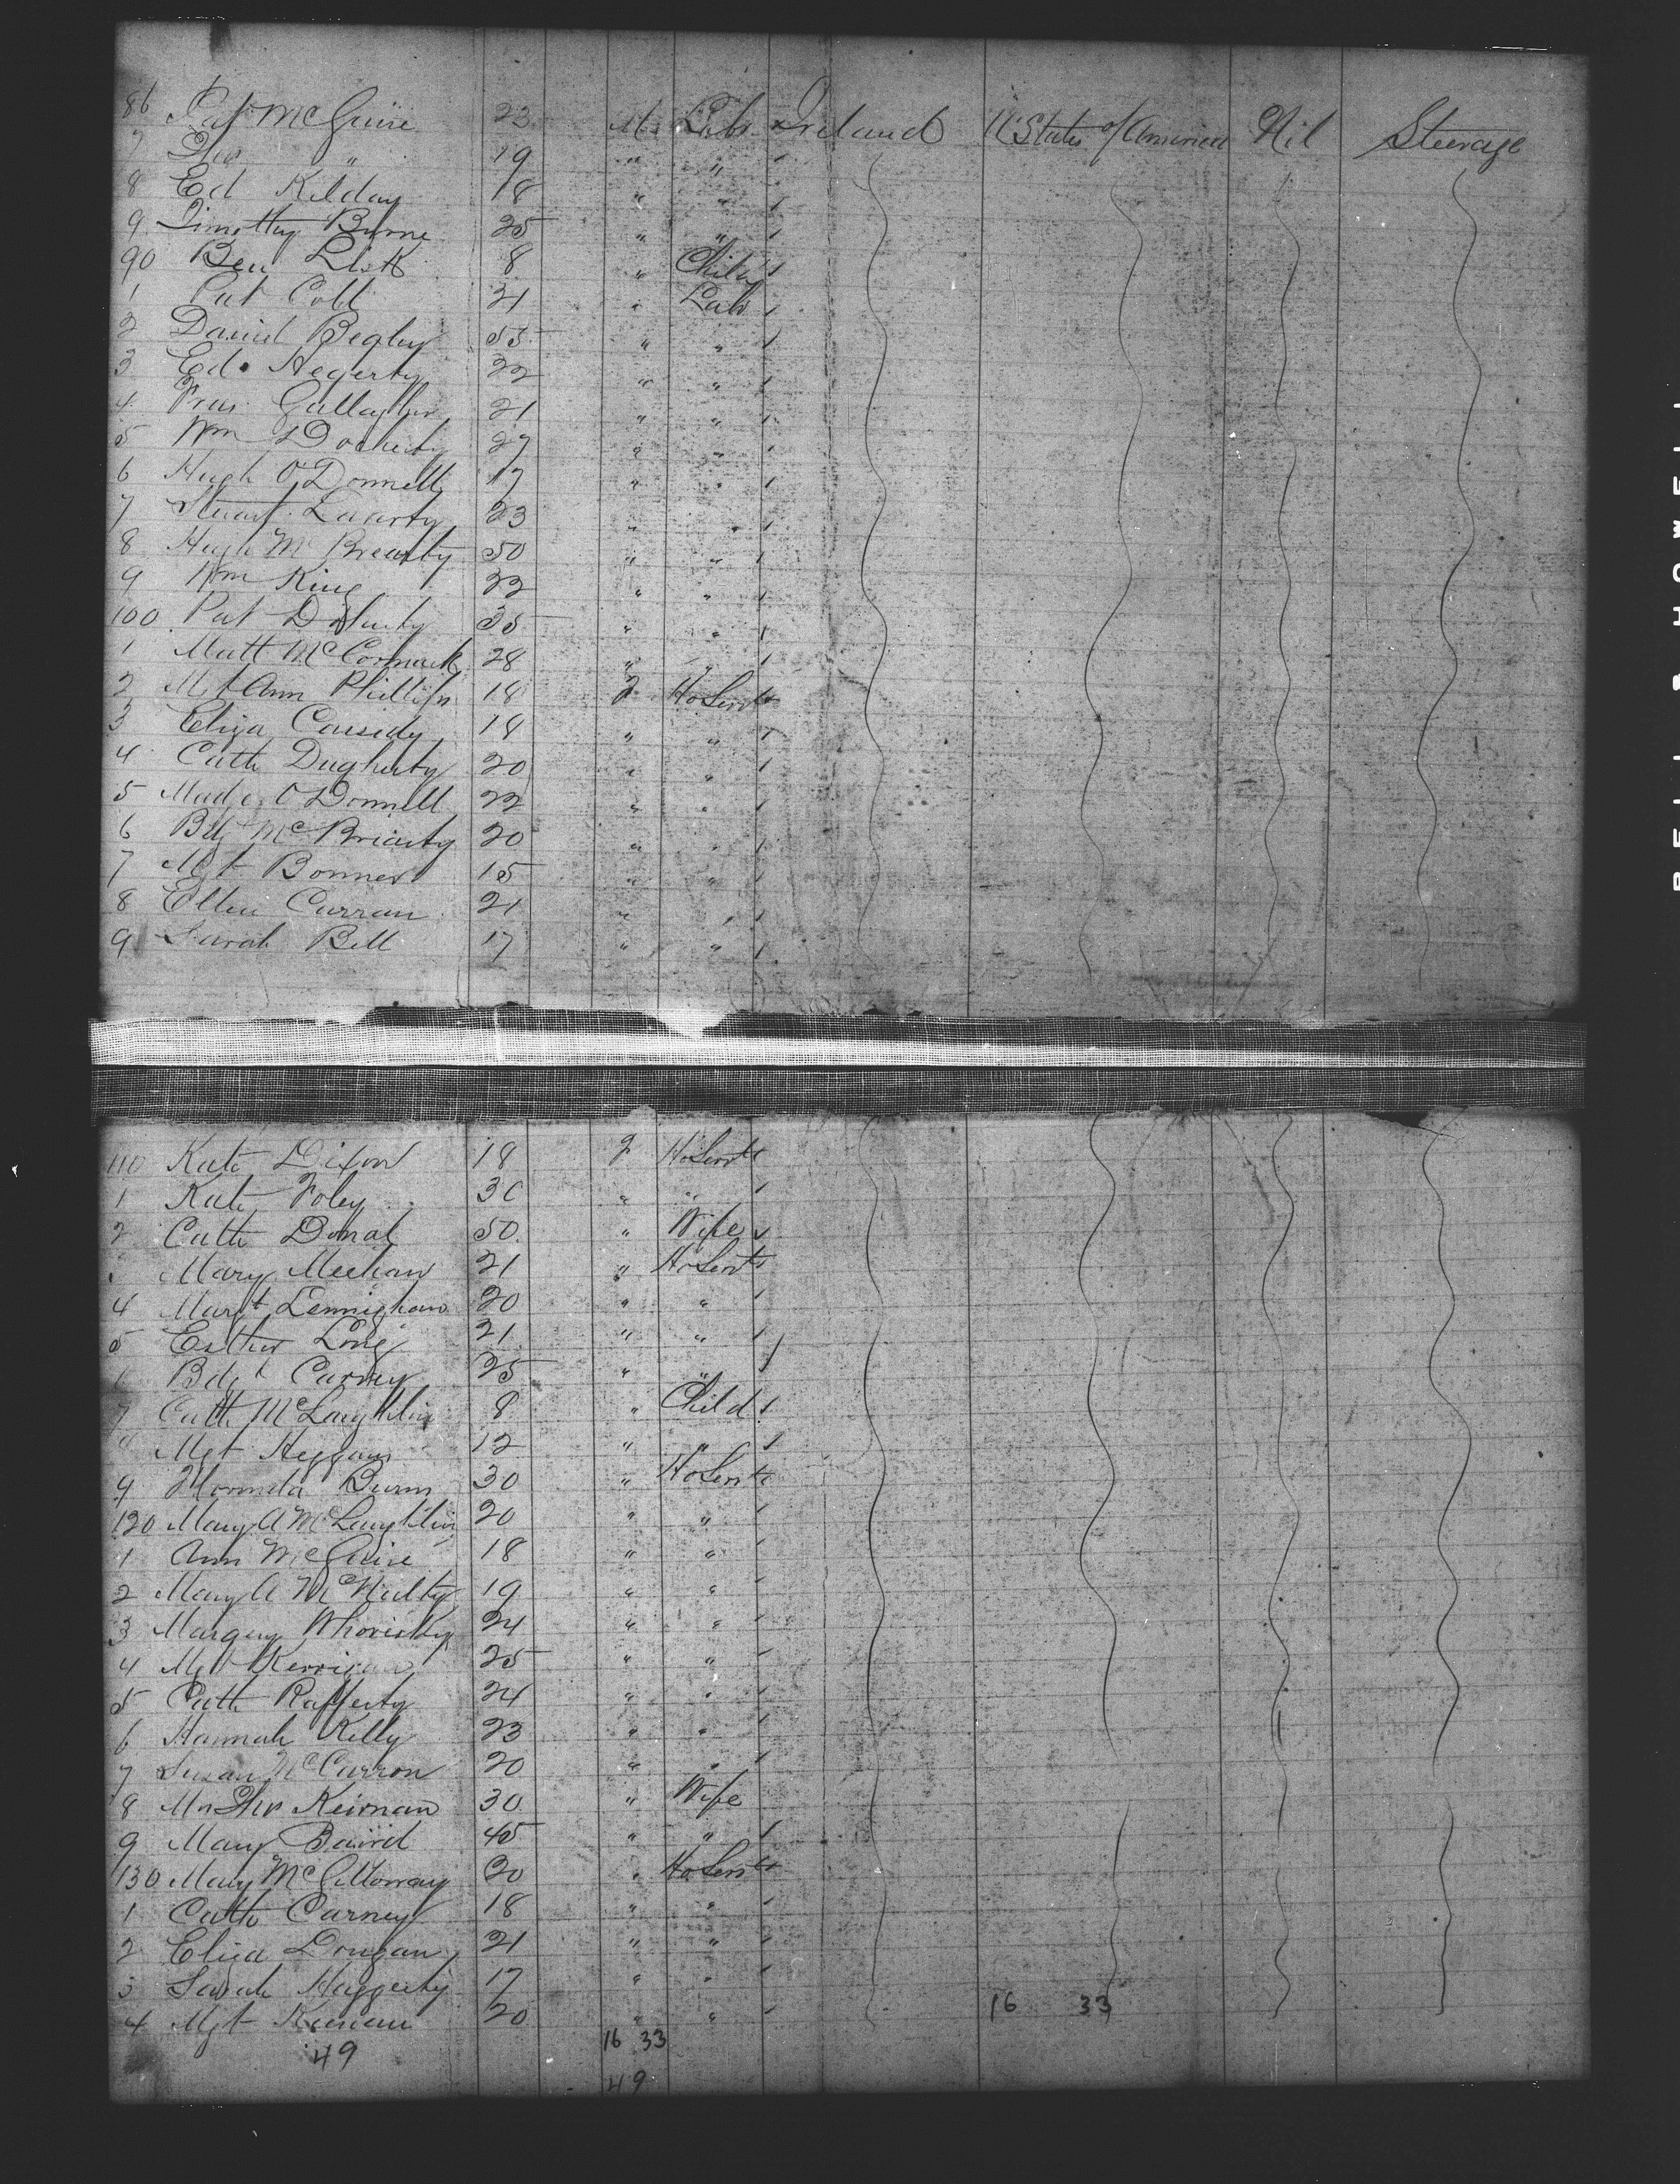 86 Pat McGuire 23 M Lab Ireland U States of America Nil Steerage
7 " 19 " "
8 Ed Kilday 18 " "
9 Timothy Byrne 25 " "
90 Ben Lisk 8 " Child
1 Pat Coll 21 " Lab
2 Daniel Begley 55 " "
3 Ed. Hegerty 22 " "
4 Fras Gallagher 21 " "
5 Wm Docherty 27 " "
6 Hugh O'Donnell 17 " "
7 Stuart 23 " "
8 Hugh McBrearty 50 " "
9 Wm King 22 " "
100 Pat Doherty 35 " "
1 Matt McCormack 28 " "
2 Mgt Ann Phillips 18 F HoServt
3 Eliza Cassidy 18 " "
4 Cath Dugherty 20 " "
5 Madge O'Donnell 22 " "
6 McBriarty 20 " "
7 Mgt Bonner 15 " "
8 Ellen Curran 21 " "
9 Sarah Bell 17 " "
110 Kate Dixon 18 F HoServt
1 Kate Foley 30 " "
2 Cath 50 " Wife
Mary Meehan 21 " HoServt
4 Margt 20 " "
5 Esther Long 21 " "
Bdgt Carney 25 " "
7 Cath McLaughlin 8 " Child
Mgt Heggans 12 " "
9 Burns 30 " HoServt
120 Mary A McLaughlin 20 " "
1 Ann McGuire 18 " "
2 Mary A McNulty 19 " "
3 Margery Whorisky 24 " "
4 Mgt Kerrigan 25 " "
5 Cath Rafferty 24 " "
6 Hannah Kelly 23 " "
7 Susan McCarron 20 " "
8 Keirnan 30 " Wife
9 Mary Baird 45 " "
130 Mary McGilloway 20 " HoServt
1 Cath Carney 18 " "
2 Eliza Dougan 21 " "
3 Sarah Haggerty 17 " "
4 Mgt Keenan 20 " " 16 33
49 16 33
49
BELL & HOWELL